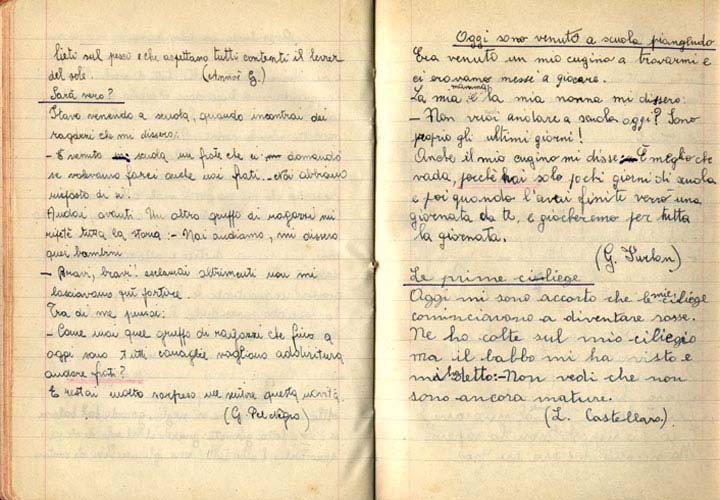 lieti sul pesco e che aspettano tutti contenti il levar
del sole. (Annoè G.)
Sarà vero?
Stavo venendo a scuola, quando incontrai dei
ragazzi che mi dissero:
- È venuto a scuola un frate che ci domandò
se volevamo farci anche noi frati. - Noi abbiamo
risposto di sì.
Andai avanti. Un altro gruppo di ragazzi mi
ripeté tutta la storia: - Noi andiamo, mi dissero
quei bambini.
- Bravi, bravi! esclamai altrimenti non mi
lasciavano più partire.
Tra di me pensai:
- Come mai quel gruppo di ragazzi che fino a
oggi sono tutti canaglie vogliono addirittura
andare frati?
E restai molto sorpreso nel sentire questa novità.
(G. Pel Negro)
Oggi sono venuto a scuola piangendo
Era venuto un mio cugino a trovarmi e
ci eravamo messi a giocare.
La mia mamma e la mia nonna mi dissero:
- Non vuoi andare a scuola oggi? Sono
proprio gli ultimi giorni!
Anche il mio cugino mi disse: - È meglio che
vada, perchè hai solo pochi giorni di scuola
e poi quando l'avrai finita verrò una
giornata da te, e giocheremo per tutta
la giornata.
(G. Furlan)
Le prime ciliege
Oggi mi sono accorto che le mie ciliege
cominciarono a diventare rosse.
Ne ho colte sul mio ciliegio
ma il babbo mi ha visto e
mi ha detto: - Non vedi che non
sono ancora mature.
(L. Castellaro).